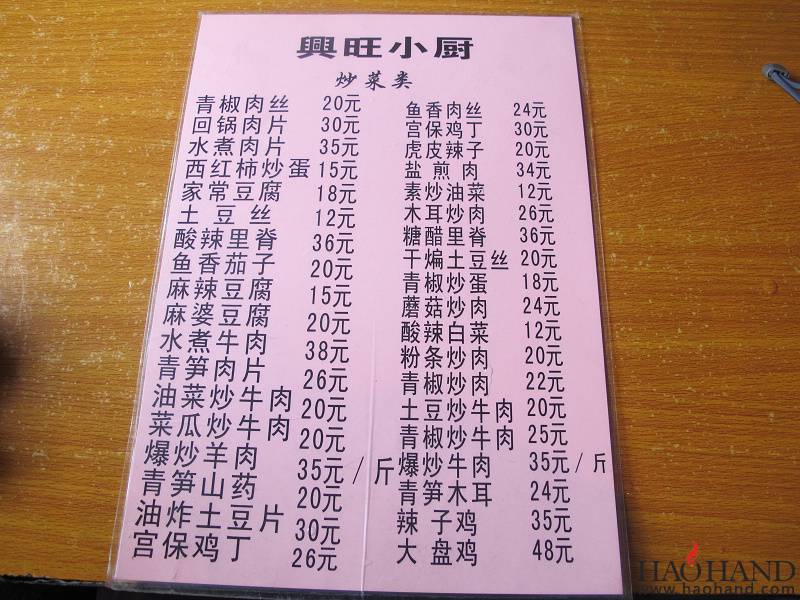 興旺小厨
炒菜类
青椒肉丝 20元
回锅肉片 30元
水煮肉片 35元
西红柿炒蛋 15元
家常豆腐 18元
土豆丝 12元
酸辣里脊 36元
鱼香茄子 20元
麻辣豆腐 15元
麻婆豆腐 20元
水煮牛肉 38元
青笋肉片 26元
油菜炒牛肉 20元
菜瓜炒牛肉 20元
爆炒羊肉 35元/斤
青笋山药 20元
油炸土豆片 30元
宫保鸡丁 26元
鱼香肉丝 24元
宫保鸡丁 30元
虎皮辣子 20元
盐煎肉 34元
素炒油菜 12元
木耳炒肉 26元
糖醋里脊 36元
干煸土豆丝 20元
青椒炒蛋 18元
蘑菇炒肉 24元
酸辣白菜 12元
粉条炒肉 20元
青椒炒肉 22元
土豆炒牛肉 20元
青椒炒牛肉 25元
爆炒牛肉 35元/斤
青笋木耳 24元
辣子鸡 35元
大盘鸡 48元
HAOHAND
www.haohand.com